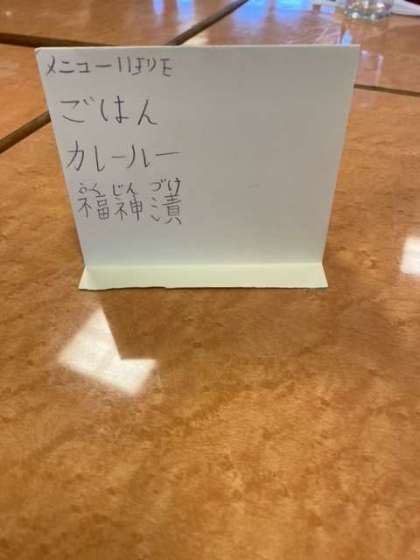 メニュー
ごはん
カレールー
ふくじんづけ
福神漬